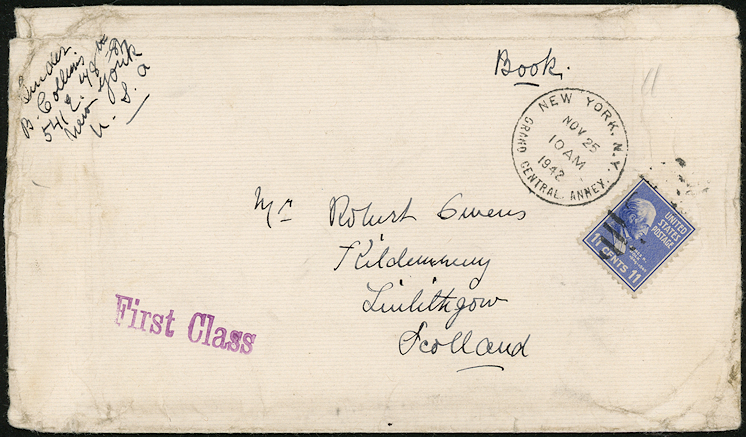 Sender
B. Collins
541 E. 78th St
New York
U. S. a
Book.
NEW YORK, N.Y.
NOV 25
10 AM
1942
GRAND CENTRAL ANNEX.
UNITED
STATES
POSTAGE
11 CENTS 11
Mr Robert Owens
Linlithgow
Scotland
First Class